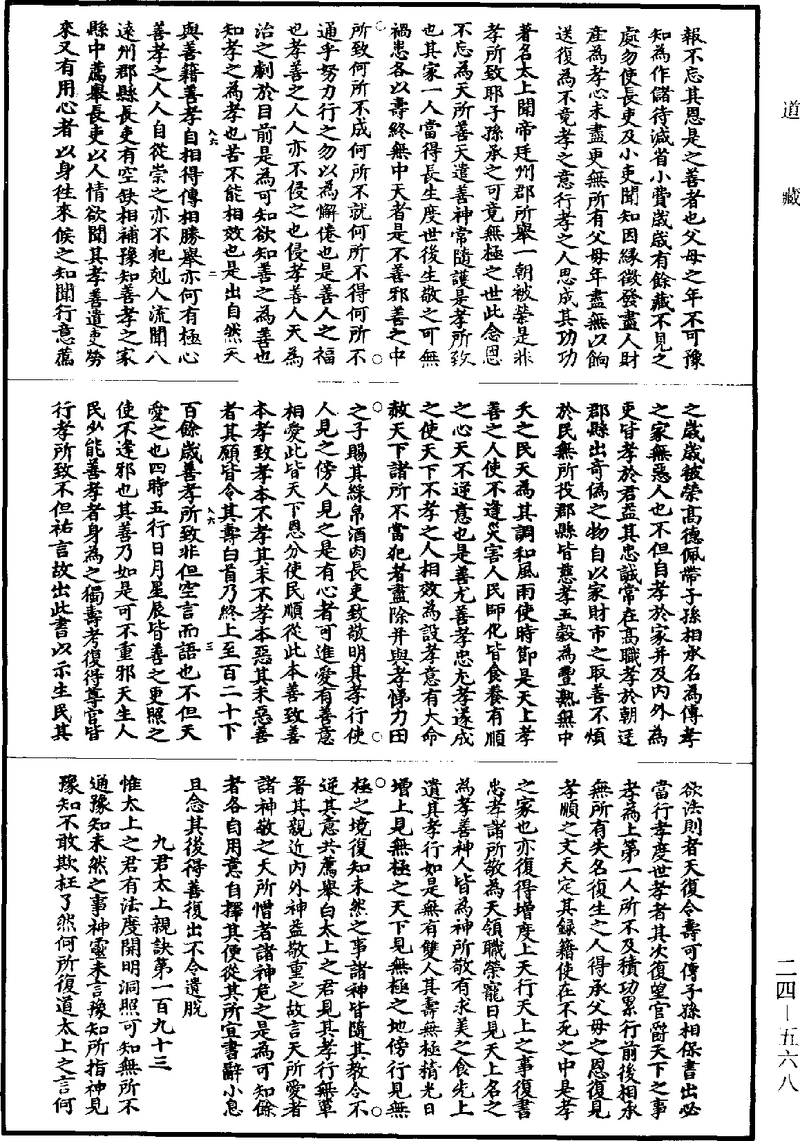 道藏
報不忘其恩是之善者也父母之年不可豫
知為作儲待減省小費歲歲有餘藏不見之
處勿使長吏及小吏聞知因緣徵發盡人財
產為孝心未盡更無所有父母年盡無以餉
送復為不竟孝之意行孝之人思成其功功
著名太上聞帝廷州郡所舉一朝被榮是非
孝所致耶子孫承之可竟無極之世此念恩
不忘為天所善天遣善神常隨護是孝所致
也其家一人當得長生度世後生敬之可無
禍患各以壽終無中夭者是不善邪善之中
所致何所不成何所不就何所不得何所不
通乎努力行之勿以為懈倦也是善人之福
也孝善之人人亦不侵之也侵孝善人天為
治之劇於目前是為可知欲知善之為善也
知孝之為孝也苦不能相效也是出自然天
與善籍善孝自相得傳相勝舉亦何有極心
善孝之人人自從崇之亦不犯剋人流聞八
遠州郡縣長吏有空缺相補豫知善孝之家
縣中薦舉長吏以人情欲聞其孝善遣吏勞
來又有用心者以身往來候之知聞行意薦
之歲歲被榮高德佩帶子孫相承名為傳孝
之家無惡人也不但自孝於家并及內外為
吏皆孝於君益其忠誠常在高職孝於朝廷
郡縣出奇偽之物自以家財市之取善不煩
於民無所役郡縣皆慈孝五穀為豐熟無中
夭之民天為其調和風雨使時節是天上孝
善之人使不逢災害人民師化皆食養有順
之心天不逆意也是善尤善孝忠尤孝遂成
之使天下不孝之人相效為設孝意有大命
赦天下諸所不當犯者盡除并與孝悌力田
之子賜其綵帛酒肉長吏致敬明其孝行使
人見之傍人見之是有心者可進愛有善意
相愛此皆天下恩分使民順從此本善致善
本孝致孝本不孝其末不孝本惡其末惡善
者其願皆令其壽白首乃終上至百二十下
百餘歲善孝所致非但空言而語也不但天
愛之也四時五行日月星辰皆善之更照之
使不逢邪也其善乃如是可不重邪天生人
民少能善孝者身為之獨壽考復得尊官皆
行孝所致不但祐言故出此書以示生民其
欲法則者天復令壽可傳子孫相保書出必
當行孝度世孝者其次復望官爵天下之事
孝為上第一人所不及積功累行前後相承
無所有失名復生之人得承父母之恩復見
孝順之文天定其錄籍使在不死之中是孝
之家也亦復得增度上天行天上之事復書
忠孝諸所敬為天領職榮寵日見天上名之
為孝善神人皆為神所敬有求美之食先上
遺其孝行如是無有雙人其壽無極精光日
增上見無極之天下見無極之地傍行見無
極之境復知未然之事諸神皆隨其教令不
逆其意共薦舉白太上之君見其孝行無輩
著其親近內外神益敬重之故言天所愛者
諸神敬之天所憎者諸神危之是為可知餘
者各自用意自擇其便從其所宜書辭小息
且念其後得善復出不令遺脫
九君太上親訣第一百九十三
惟太上之君有法度開明洞照可知無所不
通豫知未然之事神靈未言豫知所指神見
豫知不敢欺枉了然何所復道太上之言何
二四—五六八